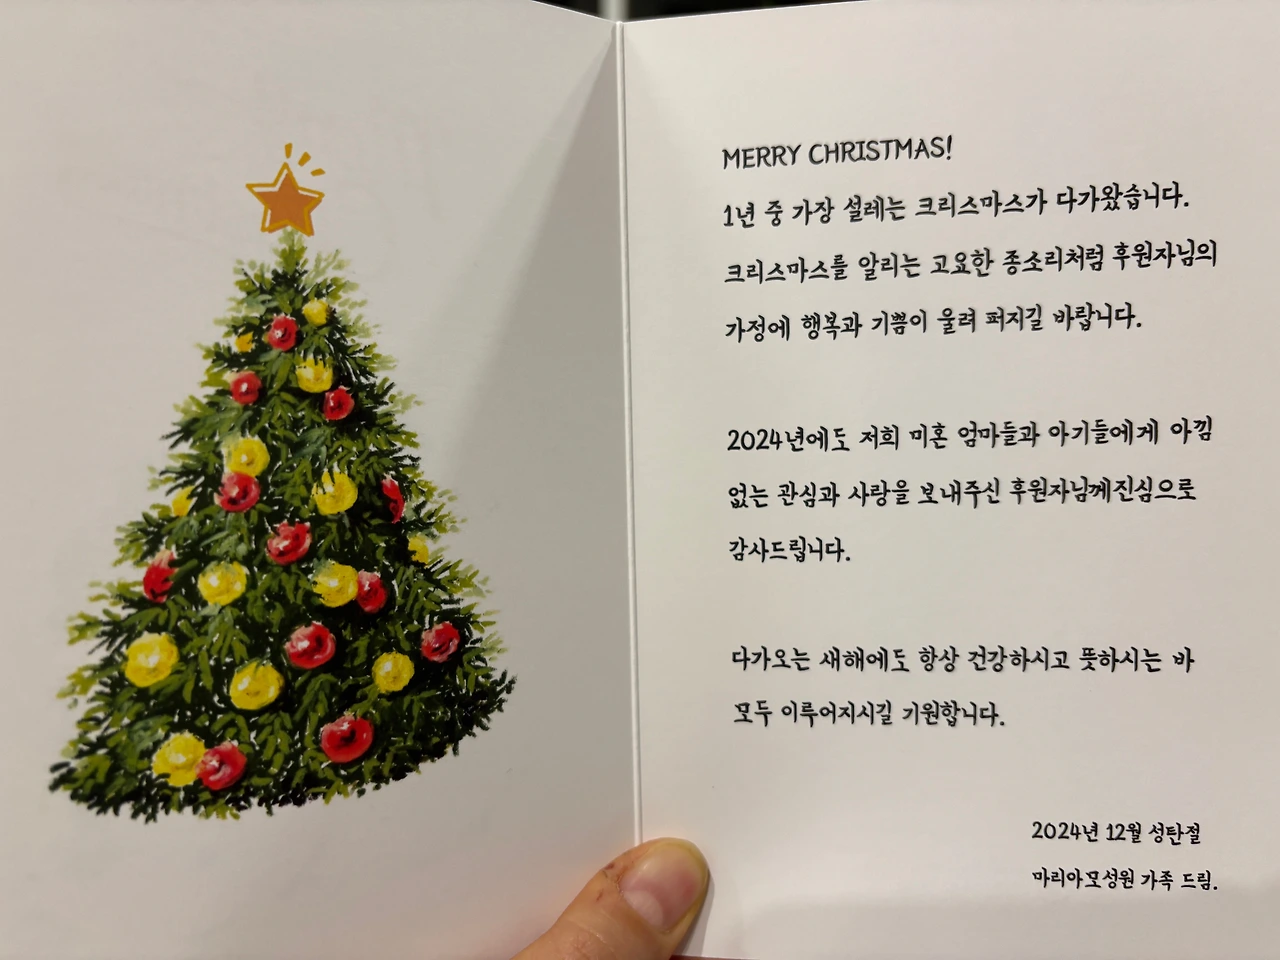 MERRY CHRISTMAS!
1년 중 가장 설레는 크리스마스가 다가왔습니다.
크리스마스를 알리는 고요한 종소리처럼 후원자님의
가정에 행복과 기쁨이 울려 퍼지길 바랍니다.
2024년에도 저희 미혼 엄마들과 아기들에게 아낌
없는 관심과 사랑을 보내주신 후원자님께진심으로
감사드립니다.
다가오는 새해에도 항상 건강하시고 뜻하시는 바
모두 이루어지시길 기원합니다.
2024년 12월 성탄절
마리아모성원 가족 드림.